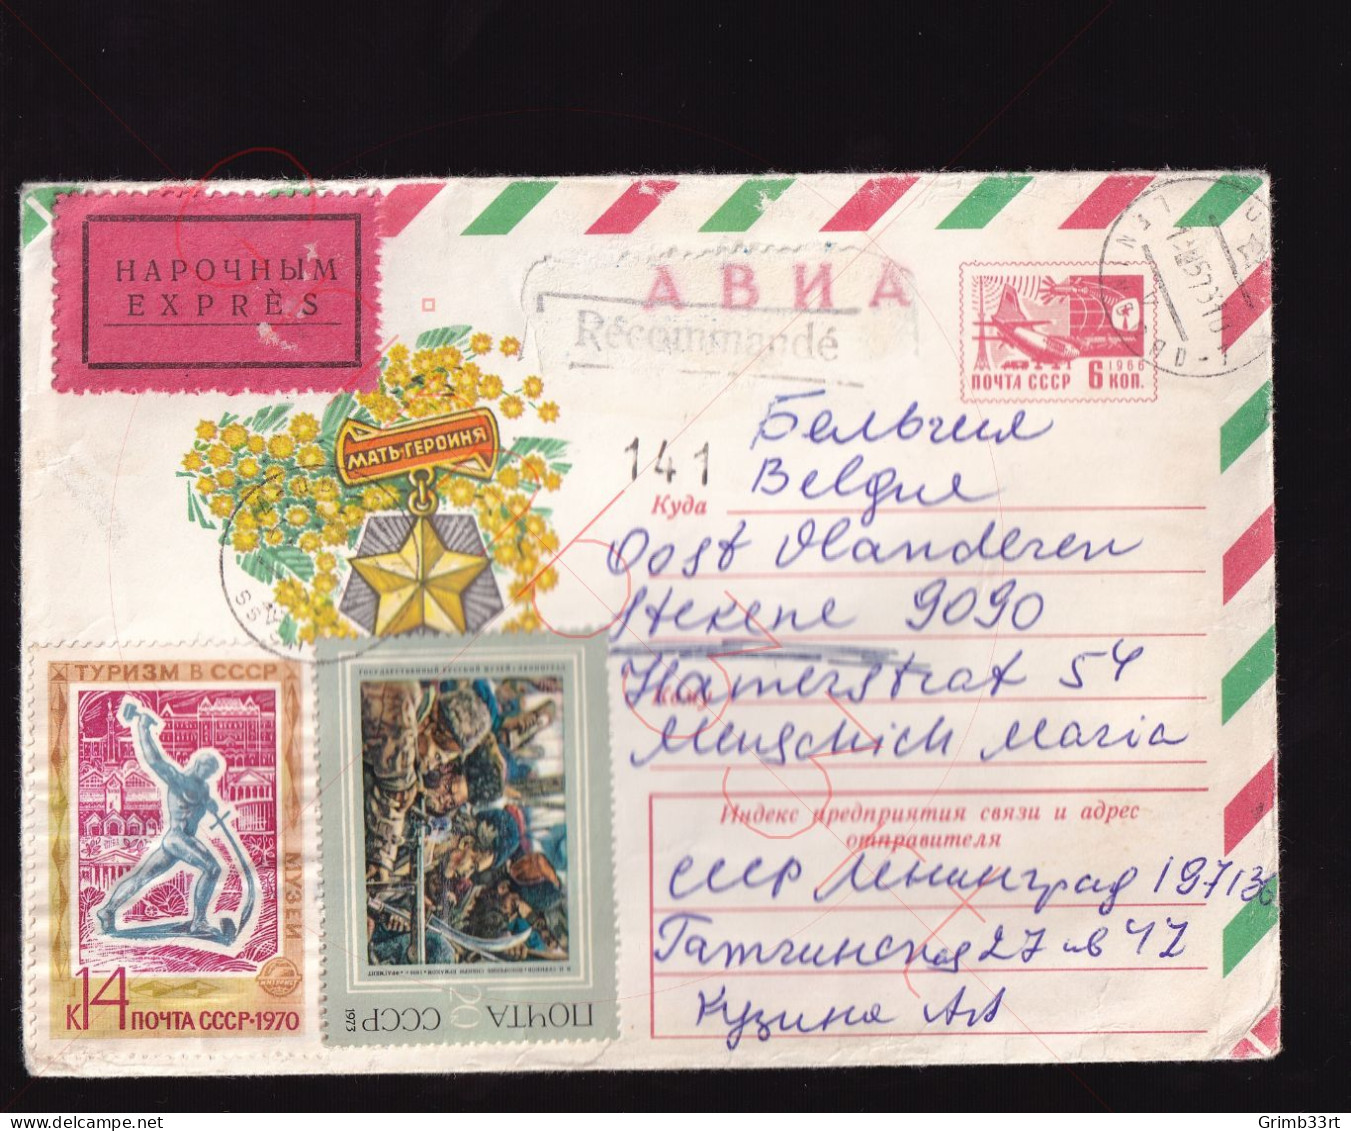 НАРОЧНЫМ
EXPRÈS
АВИА
Récommandé
1966
ПОЧТА СССР 6 КОП.
МАТЬ-ГЕРОИНЯ
141
Бельгия
Куда
Belgue
Oost Vlanderen
Stekene 9090
Кому
54
Maria
Индекс предприятия связи и адрес
отправителя
СССР Ленинград 197136
27 кв 47
Кузина
ТУРИЗМ В СССР
МУЗЕИ
К14 ПОЧТА СССР·1970
ГОСУДАРСТВЕННЫЙ РУССКИЙ МУЗЕЙ·ЛЕНИНГРАД
ПОЧТА 20 СССР
1973
Grimb33rt